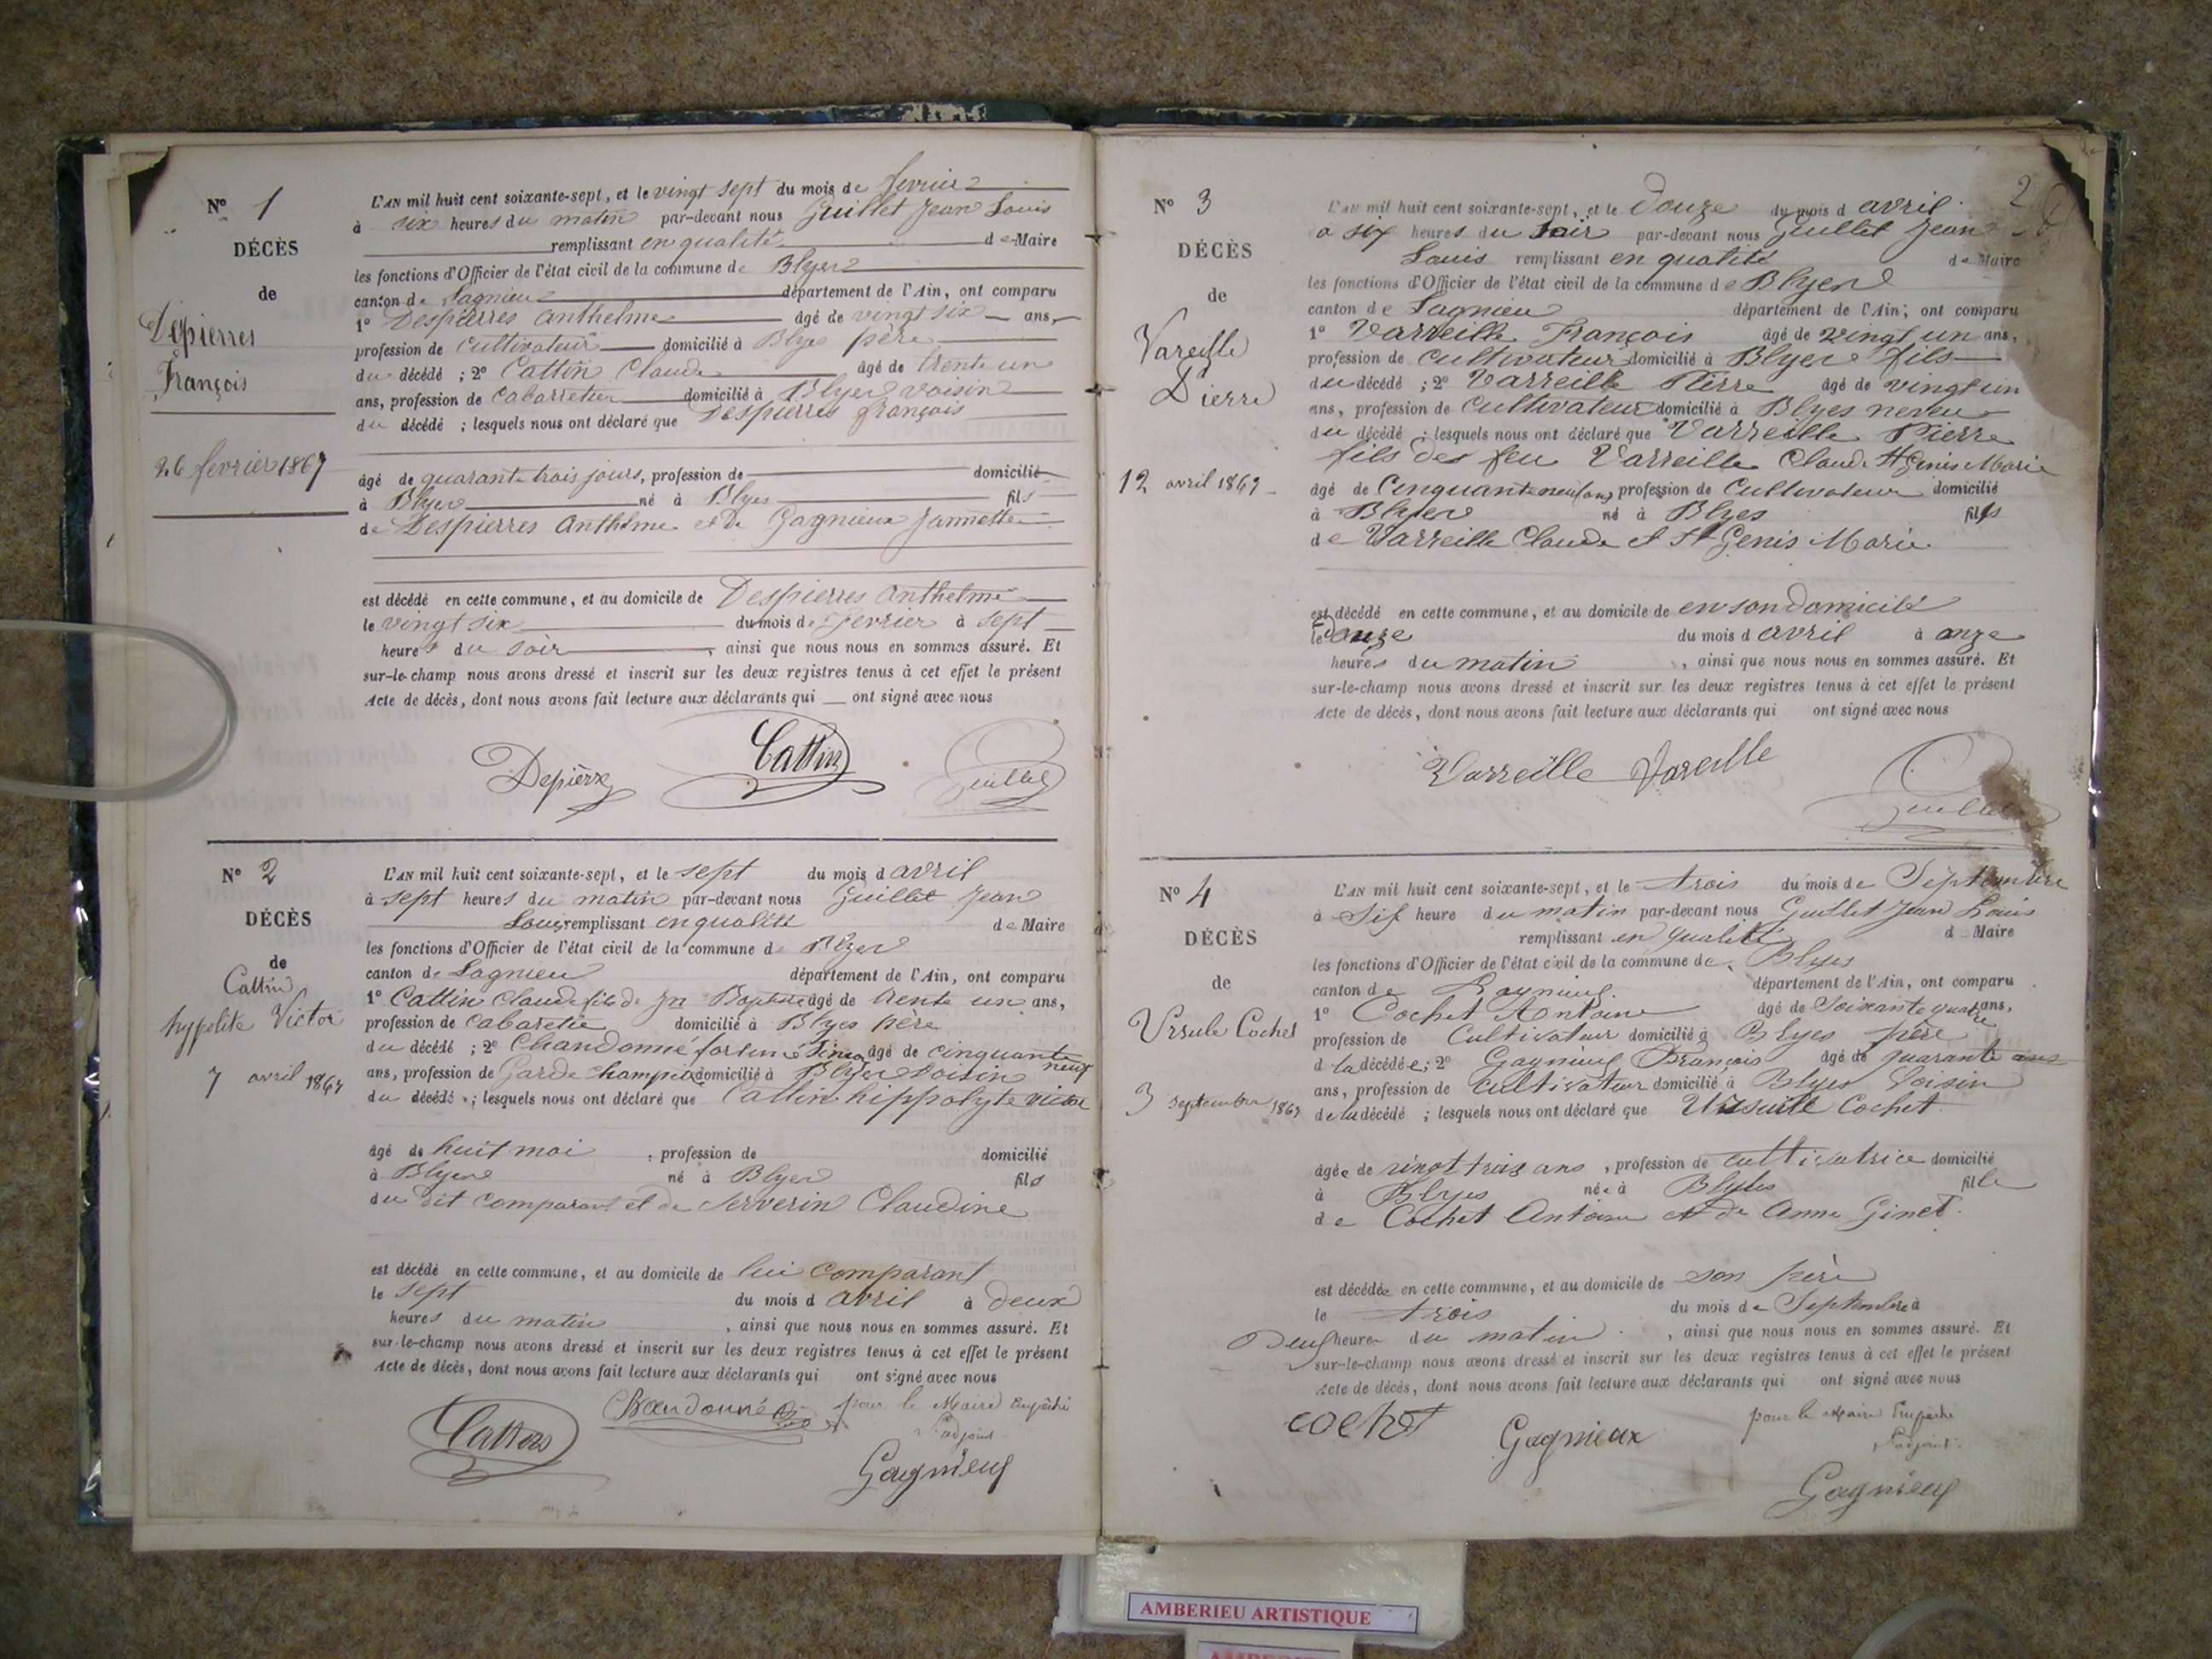 N° 1
DÉCÈS
de
Depierres
François
26 fevrier 1867
L'AN mil huit cent soixante-sept, et le vingt sept du mois de fevrier
à six heures du matin par-devant nous Guillet Jean Louis
remplissant en qualité de Maire
les fonctions d'Officier de l'état civil de la commune de Blyes
canton de Lagnieu département de l'Ain, ont comparu
1° Despierres Anthelme âgé de vingt six ans,
profession de Cultivateur domicilié à Blyes père
du décédé ; 2° Cattin Claude âgé de trente un
ans, profession de Cabarretier domicilié à Blyes voisin
du décédé ; lesquels nous ont déclaré que Despierres françois
âgé de quarante trois jours, profession de domicilié
à Blyes né à Blyes fils
de Despierres Anthelme et de Gagnieux Jannette
est décédé en cette commune, et au domicile de Despierres Anthelme
le vingt six du mois de Fevrier à sept
heures du soir , ainsi que nous nous en sommes assuré. Et
sur-le-champ nous avons dressé et inscrit sur les deux registres tenus à cet effet le présent
Acte de décès, dont nous avons fait lecture aux déclarants qui ont signé avec nous
Depierre Cattin Guillet
N° 2
DÉCÈS
de
Cattin
hypolite Victor
7 avril 1867
L'AN mil huit cent soixante-sept, et le sept du mois d avril
à sept heures du matin par-devant nous Guillet Jean
Louis remplissant en qualité de Maire
les fonctions d'Officier de l'état civil de la commune de Blyes
canton de Lagnieu département de l'Ain, ont comparu
1° Cattin Claude fils de Jn Baptiste âgé de trente un ans,
profession de Cabaretie domicilié à Blyes père
du décédé ; 2° Chandonné fortuné âgé de cinquante neuf
ans, profession de Garde champêtre domicilié à Blyes Voisin
du décédé ; lesquels nous ont déclaré que Cattin hippolyte victor
âgé de huit moi , profession de domicilié
à Blyes né à Blyes fils
du dit comparant et de Serverin Claudine
est décédé en cette commune, et au domicile de lui comparant
le sept du mois d avril à deux
heures du matin , ainsi que nous nous en sommes assuré. Et
sur-le-champ nous avons dressé et inscrit sur les deux registres tenus à cet effet le présent
Acte de décès, dont nous avons fait lecture aux déclarants qui ont signé avec nous
Cattin Chandonné pour le Maire Empêché
l'adjoint
Gagnieux
2
N° 3
DÉCÈS
de
Vareille
Pierre
12 avril 1867
L'AN mil huit cent soixante-sept, et le Douze du mois d avril
à six heures du soir par-devant nous Guillet Jean
Louis remplissant en qualité de Maire
les fonctions d'Officier de l'état civil de la commune de Blyes
canton de Lagnieu département de l'Ain, ont comparu
1° Varreille François âgé de vingt un ans,
profession de Cultivateur domicilié à Blyes fils
du décédé ; 2° Varreille Pierre âgé de vingt un
ans, profession de Cultivateur domicilié à Blyes neveu
du décédé ; lesquels nous ont déclaré que Varreille Pierre
fils des feu Varreille Claude St Genis Marie
âgé de Cinquante neuf ans, profession de Cultivateur domicilié
à Blyes né à Blyes fils
de Varreille Claude et St Genis Marie
est décédé en cette commune, et au domicile de en son domicile
le Douze du mois d avril à onze
heures du matin , ainsi que nous nous en sommes assuré. Et
sur-le-champ nous avons dressé et inscrit sur les deux registres tenus à cet effet le présent
Acte de décès, dont nous avons fait lecture aux déclarants qui ont signé avec nous
Varreille Vareille
Guillet
N° 4
DÉCÈS
de
Ursule Cochet
3 septembre 1867
L'AN mil huit cent soixante-sept, et le trois du mois de Septembre
à Six heure du matin par-devant nous Guillet Jean Louis
remplissant en qualité d Maire
les fonctions d'Officier de l'état civil de la commune de Blyes
canton de Lagnieux département de l'Ain, ont comparu
1° Cochet Antoine âgé de Soixante quatre ans,
profession de Cultivateur domicilié à Blyes père
d la décédée; 2° Gagnieux François âgé de quarante ans
ans, profession de Cultivateur domicilié à Blyes Voisin
de la décédé ; lesquels nous ont déclaré que Ursule Cochet
âgée de vingt trois ans , profession de cultivatrice domicilié
à Blyes née à Blyes fille
de Cochet Antoine et de Anne Ginet
est décédée en cette commune, et au domicile de son père
le trois du mois de Septembre à
Deux heures du matin , ainsi que nous nous en sommes assuré. Et
sur-le-champ nous avons dressé et inscrit sur les deux registres tenus à cet effet le présent
Acte de décès, dont nous avons fait lecture aux déclarants qui ont signé avec nous
cochet Gagnieux pour le Maire Empêché
l'adjoint
Gagnieux
AMBERIEU ARTISTIQUE